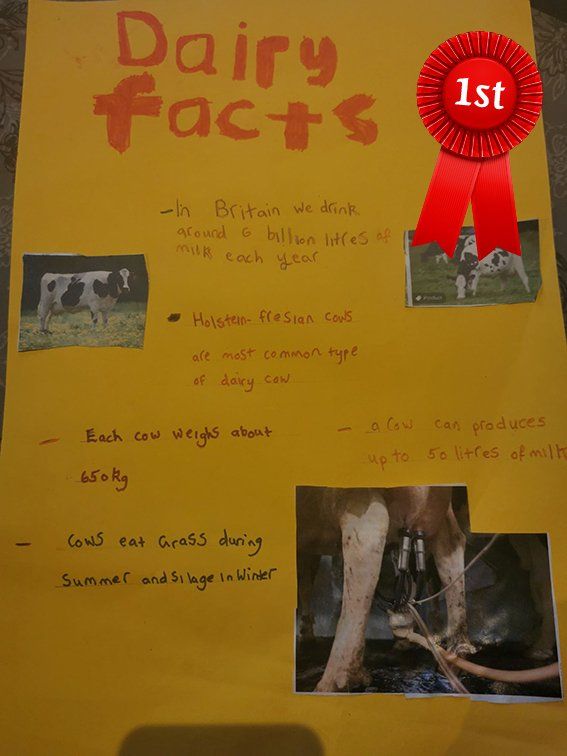 Dairy
facts
1st
- In Britain we drink
around 6 billion litres of
milk each year
Holstein-fresian cows
are most common type
of dairy cow
- Each cow weighs about
650kg
- a cow can produces
up to 50 litres of milk
- Cows eat Grass during
Summer and Silage in Winter